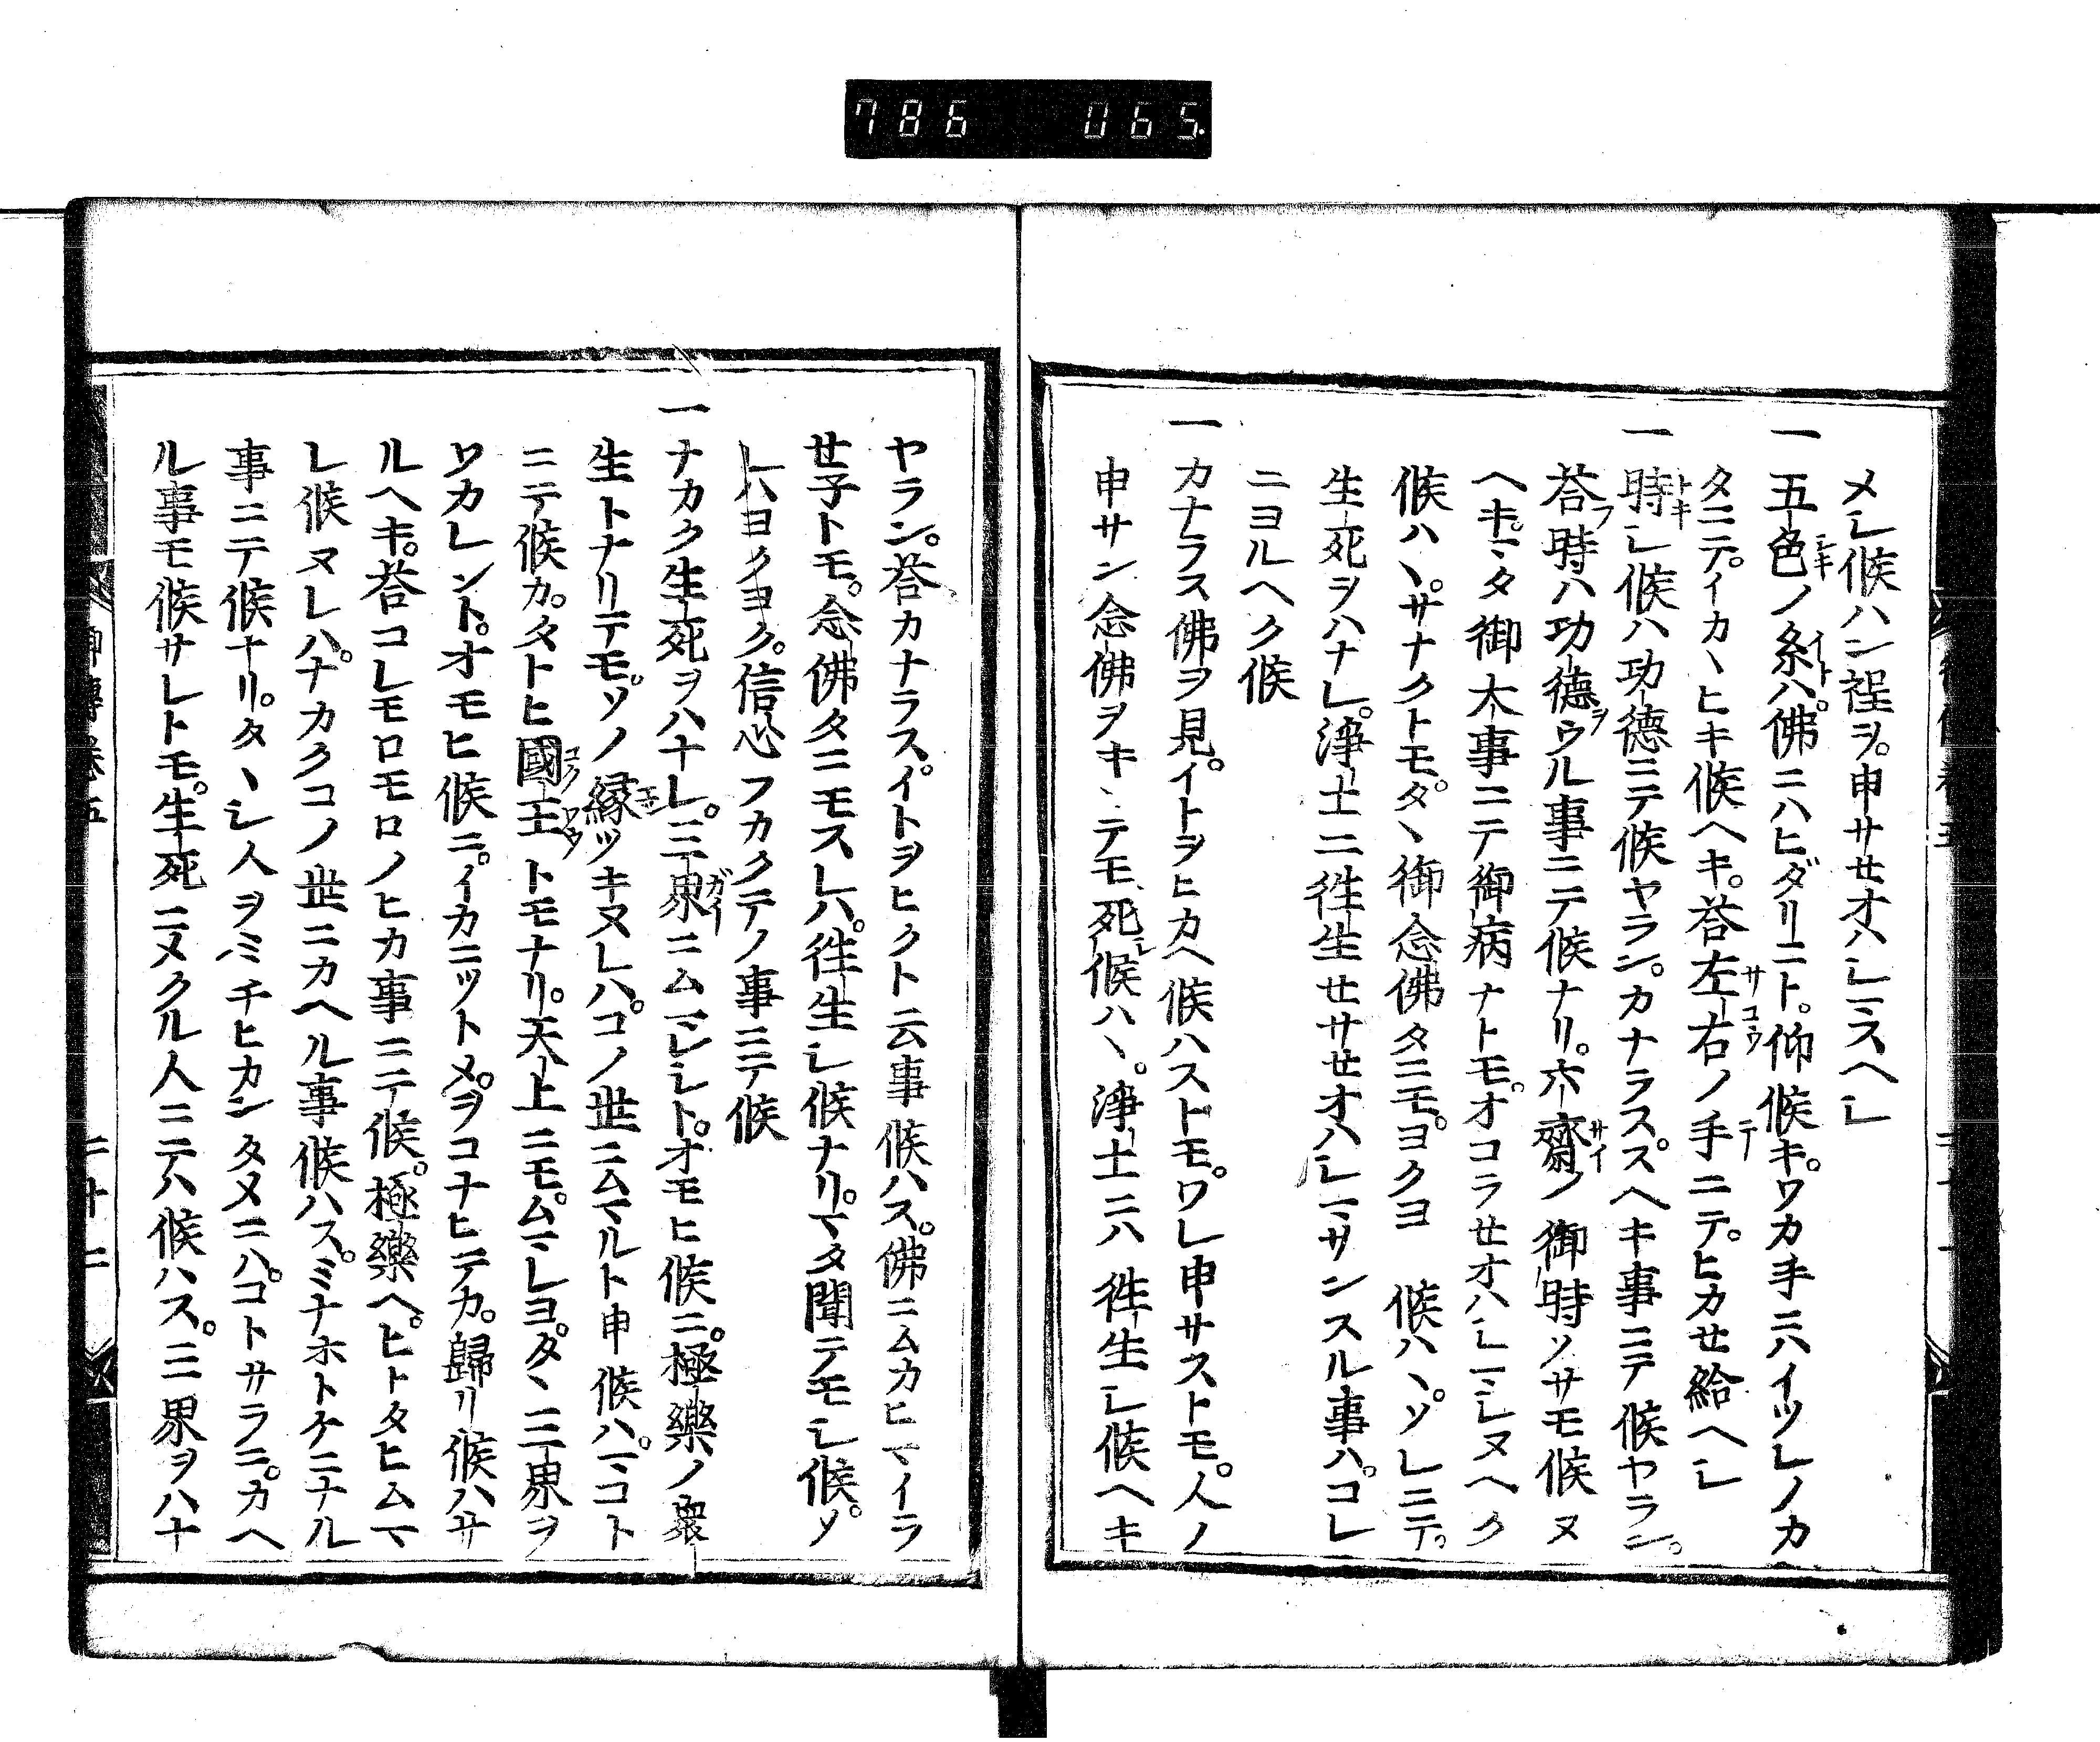 786 065.
メシ候ハン裎ヲ。申サセオハシマスヘシ
一五色ノ糸ハ。佛ニハヒダリニト。仰候キ。ワカ手ニハイツレノカ
タニテ。イカヽヒキ候ヘキ。荅左右ノ手ニテ。ヒカセ給ヘシ
一時シ候ハ功德ニテ候ヤラン。カナラススヘキ事ニテ候ヤラン。
荅時ハ功德ウル事ニテ候ナリ。六齋ノ御時ソサモ候ヌ
ヘキ。マタ御大事ニテ御病ナトモ。オコラセオハシマシヌヘク
候ハヽ。サナクトモ。タヽ御念佛タニモ。ヨクヨ 候ハヽ。ソレニテ。
生死ヲハナレ。淨土ニ徃生セサセオハシマサンスル事ハ。コレ
ニヨルヘク候
一カナラス佛ヲ見。イトヲヒカヘ候ハストモ。ワレ申サストモ。人ノ
申サン念佛ヲキヽテモ死候ハヽ。淨土ニハ徃生シ候ヘキ
ヤラン。荅カナラス。イトヲヒクト云事候ハス。佛ニムカヒマイラ
せ子トモ。念佛タニモスレハ。徃生シ候ナリ。マタ聞テモシ候。ソ
レハヨクヨク。信心フカクテノ事ニテ候
一ナカク生死ヲハナレ。三界ニムマレシト。オモヒ候ニ。極樂ノ衆
生トナリテモ。ソノ縁ツキヌレハ。コノ丗ニムマルト申候ハ。マコト
ニテ候カ。タトヒ國王トモナリ。天上ニモ。ムマレヨ。タヽ三界ヲ
ワカレント。オモヒ候ニ。イカニツトメ。ヲコナヒテカ。歸リ候ハサ
ルヘキ。荅コレモロモロノヒカ事ニテ候。極樂ヘ。ヒトタヒムマ
レ候ヌレハ。ナカクコノ丗ニカヘル事候ハス。ミナホトケニナル
事ニテ候ナリ。タヽシ人ヲミチヒカンタメニハ。コトサラニ。カヘ
ル事モ候サレトモ。生死ニメクル人ニテハ候ハス。三界ヲハナ